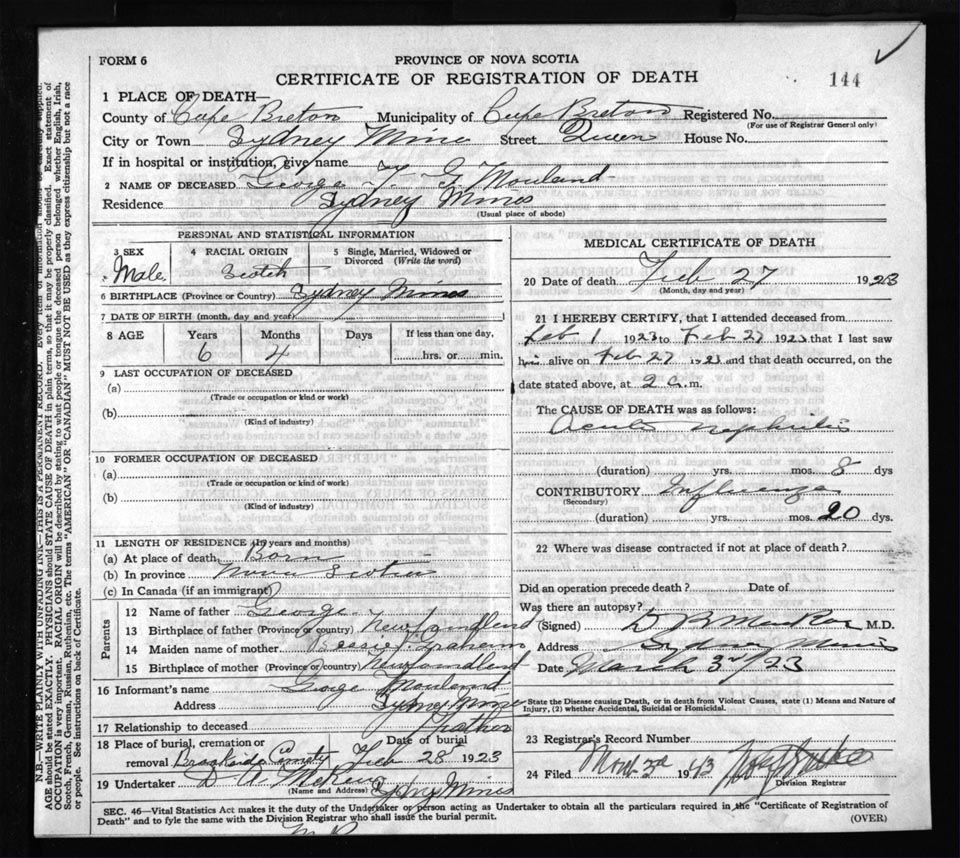 FORM 6
PROVINCE OF NOVA SCOTIA
CERTIFICATE OF REGISTRATION OF DEATH
144
1 PLACE OF DEATH—
County of Cape Breton Municipality of Cape Breton Registered No.
(For use of Registrar General only)
City or Town Sydney Mines Street Queen House No.
If in hospital or institution, give name
2 NAME OF DECEASED George T. G. Mouland
Residence Sydney Mines
(Usual place of abode)
PERSONAL AND STATISTICAL INFORMATION
3 SEX 4 RACIAL ORIGIN 5 Single, Married, Widowed or
Divorced (Write the word)
Male Scotch
6 BIRTHPLACE (Province or Country) Sydney Mines
7 DATE OF BIRTH (month, day and year)
8 AGE Years Months Days If less than one day,
6 4 hrs. or min.
9 LAST OCCUPATION OF DECEASED
(a)
(Trade or occupation or kind or work)
(b)
(Kind of industry)
10 FORMER OCCUPATION OF DECEASED
(a)
(Trade or occupation or kind of work)
(b)
(Kind of industry)
11 LENGTH OF RESIDENCE (in years and months)
(a) At place of death Born
(b) In province Nova Scotia
(c) In Canada (if an immigrant)
Parents
12 Name of father George
13 Birthplace of father (Province or country) Newfoundland
14 Maiden name of mother Bessie Graham
15 Birthplace of mother (Province or country) Newfoundland
16 Informant's name George Mouland
Address Sydney Mines
17 Relationship to deceased Father
18 Place of burial, cremation or Date of burial
removal Brookside County Feb 28 1923
19 Undertaker D A McRae
(Name and Address) Sydney Mines
MEDICAL CERTIFICATE OF DEATH
20 Date of death Feb 27 1923
(Month, day and year)
21 I HEREBY CERTIFY, that I attended deceased from
Feb 1 1923 to Feb 27 1923 that I last saw
him alive on Feb 27 1923 and that death occurred, on the
date stated above, at 2 a.m.
The CAUSE OF DEATH was as follows:
Acute nephritis
(duration) yrs. mos. 8 dys
CONTRIBUTORY Influenza
(Secondary)
(duration) yrs. mos. 20 dys.
22 Where was disease contracted if not at place of death?
Did an operation precede death? Date of
Was there an autopsy?
(Signed) M.D.
Address Sydney Mines
Date March 3rd/23
State the Disease causing Death, or in death from Violent Causes, state (1) Means and Nature of
Injury, (2) whether Accidental, Suicidal or Homicidal.
23 Registrar's Record Number
24 Filed March 3rd 19
Division Registrar
SEC. 46—Vital Statistics Act makes it the duty of the Undertaker or person acting as Undertaker to obtain all the particulars required in the "Certificate of Registration of
Death" and to fyle the same with the Division Registrar who shall issue the burial permit.
(OVER)
N.B.—WRITE PLAINLY WITH UNFADING INK—THIS IS A PERMANENT RECORD. Every item of information should be carefully supplied.
AGE should be stated EXACTLY. PHYSICIANS should STATE CAUSE OF DEATH in plain terms, so that it may be properly classified. Exact statement of
OCCUPATION is very important. RACIAL ORIGIN will be described by stating to what people or tongue the deceased person belonged whether English, Irish,
Scotch, French, German, Russian, Ruthenian, etc. The terms "AMERICAN" OR "CANADIAN" MUST NOT BE USED as they express citizenship but not a race
or people. See instructions on back of Certificate.